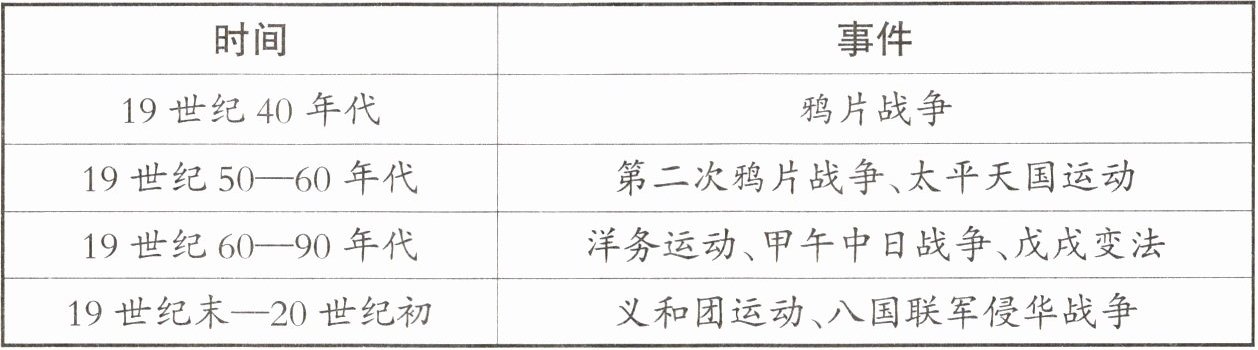 时间 事件
19世纪40年代 鸦片战争
19世纪50—60年代 第二次鸦片战争、太平天国运动
19世纪60—90年代 洋务运动、甲午中日战争、戊戌变法
19世纪末—20世纪初 义和团运动、八国联军侵华战争